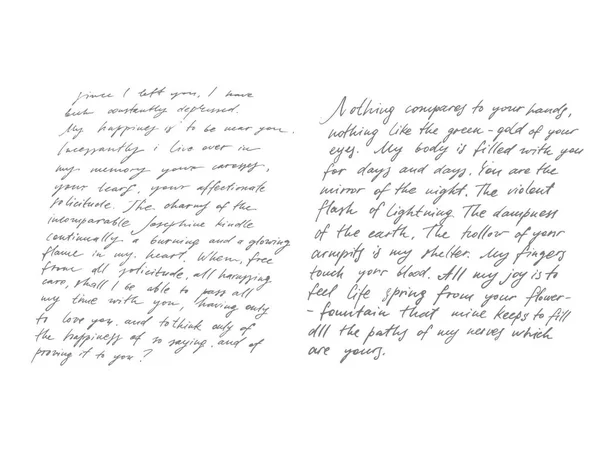 Since I left you, I have
but constantly depressed.
My happiness is to be near you.
Incessantly i live over in
my memory your caresses,
your tears, your affectionate
solicitude. The charms of the
incomparable Josephine kindle
continually a burning and a glowing
flame in my heart. When, free
from all solicitude, all harassing
care, shall I be able to pass all
my time with you, having only
to love you. and to think only of
the happiness of so saying, and of
proving it to you?
Nothing compares to your hands,
nothing like the green-gold of your
eyes. My body is filled with you
for days and days. You are the
mirror of the night. The violent
flash of lightning. The dampness
of the earth. The hollow of your
armpits is my shelter. My fingers
touch your blood. All my joy is to
feel life spring from your flower-
-fountain that mine keeps to fill
all the paths of my nerves which
are yours.